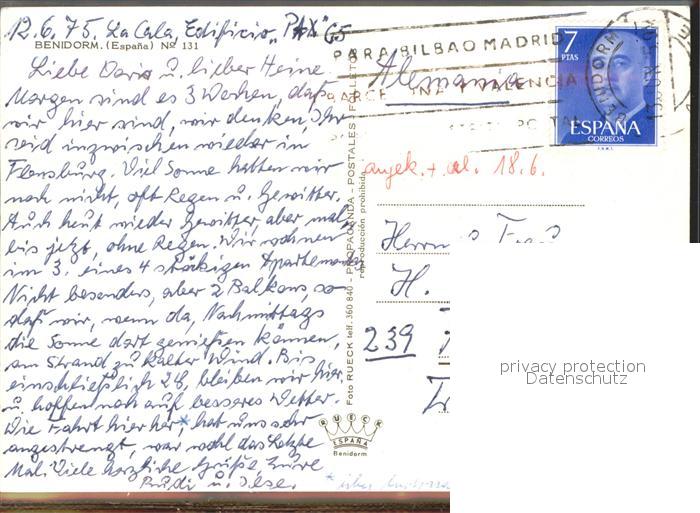 12.6.75. La Cala, Edificio „PAX“ G5
BENIDORM. (España) Nº 131
Liebe Doris u. lieber Heine
Morgen sind es 3 Wochen, daß
wir hier sind, wir denken, Ihr
seid inzwischen wieder in
Flensburg. Viel Sonne hatten wir
noch nicht, oft Regen u. Gewitter.
Auch heut wieder Gewitter, aber mal,
bis jetzt, ohne Regen. Wir wohnen
im 3. eines 4 stöckigen Apartemens
Nicht besonders, aber 2 Balkons, so
daß wir, wenn da, Nachmittags
die Sonne dort genießen können,
am Strand zu kalter Wind. Bis
einschließlich 28. bleiben wir hier,
u. hoffen noch auf besseres Wetter.
Die Fahrt hier her* hat uns sehr
angestrengt, war wohl das letzte
Mal. Viele herzliche Grüße Eure
Rudi u. Ilse.
* über
Foto RUECK telf. 360 840 - PROPAGANDA - POSTALES - FOLLETOS
reproducción prohibida
RUECK
ESPAÑA
Benidorm
PARA BILBAO MADRID
VALENCIA
POSTAL
BENIDORM
7
PTAS
ESPAÑA
CORREOS
F.N.M.T.
Alemania
angek. + 18.6.
Herrn
H.
239
privacy protection
Datenschutz